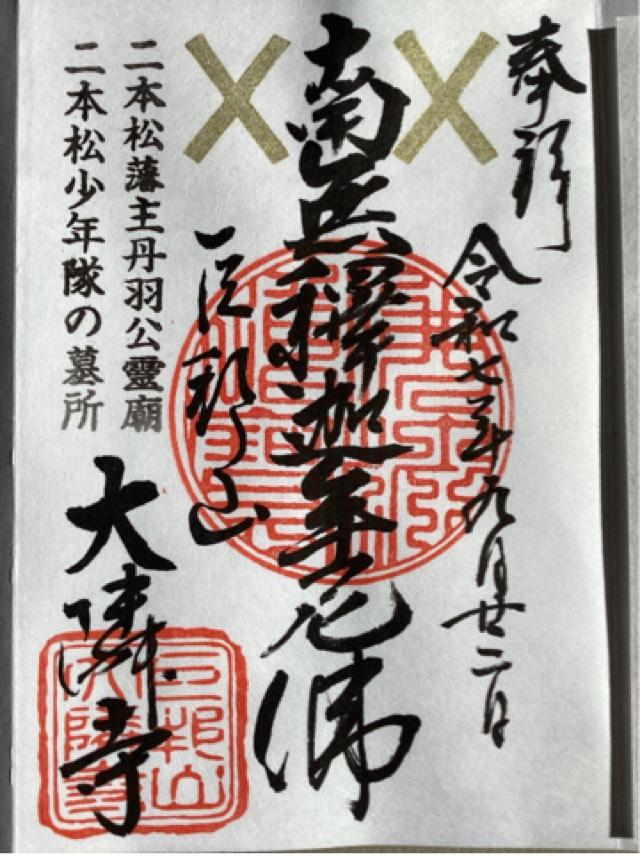 奉拝
令和七年九月廿二日
南無釋迦牟尼佛
巨邦山
二本松藩主丹羽公靈廟
二本松少年隊の墓所
大隣寺
巨邦山
大隣寺